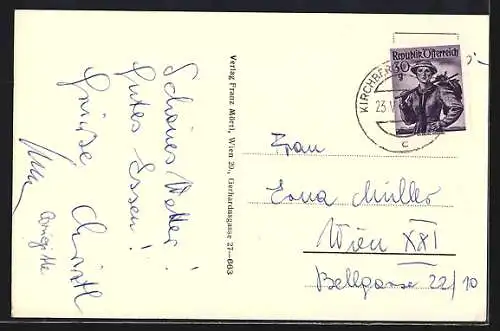 Schönes Wetter!
Gutes Essen!
Grüße Christl
Brigitte
Verlag Franz Mörtl, Wien 20., Gerhardusgasse 27—663
REPUBLIK ÖSTERREICH
30
g
KIRCHBER
23. V
c
Frau
Erna Müller
Wien XXI
Bellgasse 22/10